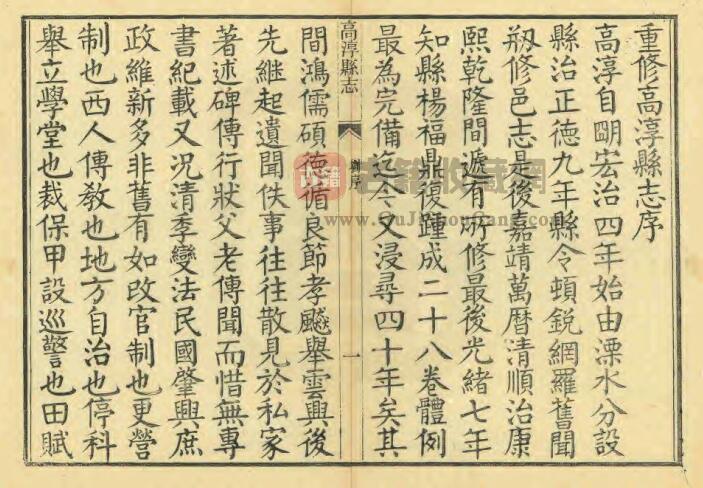 重修高淳縣志序
高淳自朙宏治四年始由溧水分設
縣治正德九年縣令頓銳網羅舊聞
刱修邑志是後嘉靖萬曆清順治康
熙乾隆間遞有所修最後光緒七年
知縣楊福鼎復踵成二十八卷體例
最為完備迄今又浸尋四十年矣其
高淳縣志
序
一
間鴻儒碩德循良節孝飈舉雲興後
先繼起遺聞佚事往往散見於私家
著述碑傳行狀父老傳聞而惜無專
書紀載又况清季變法民國肇興庶
政維新多非舊有如改官制也更營
制也西人傳教也地方自治也停科
舉立學堂也裁保甲設巡警也田賦